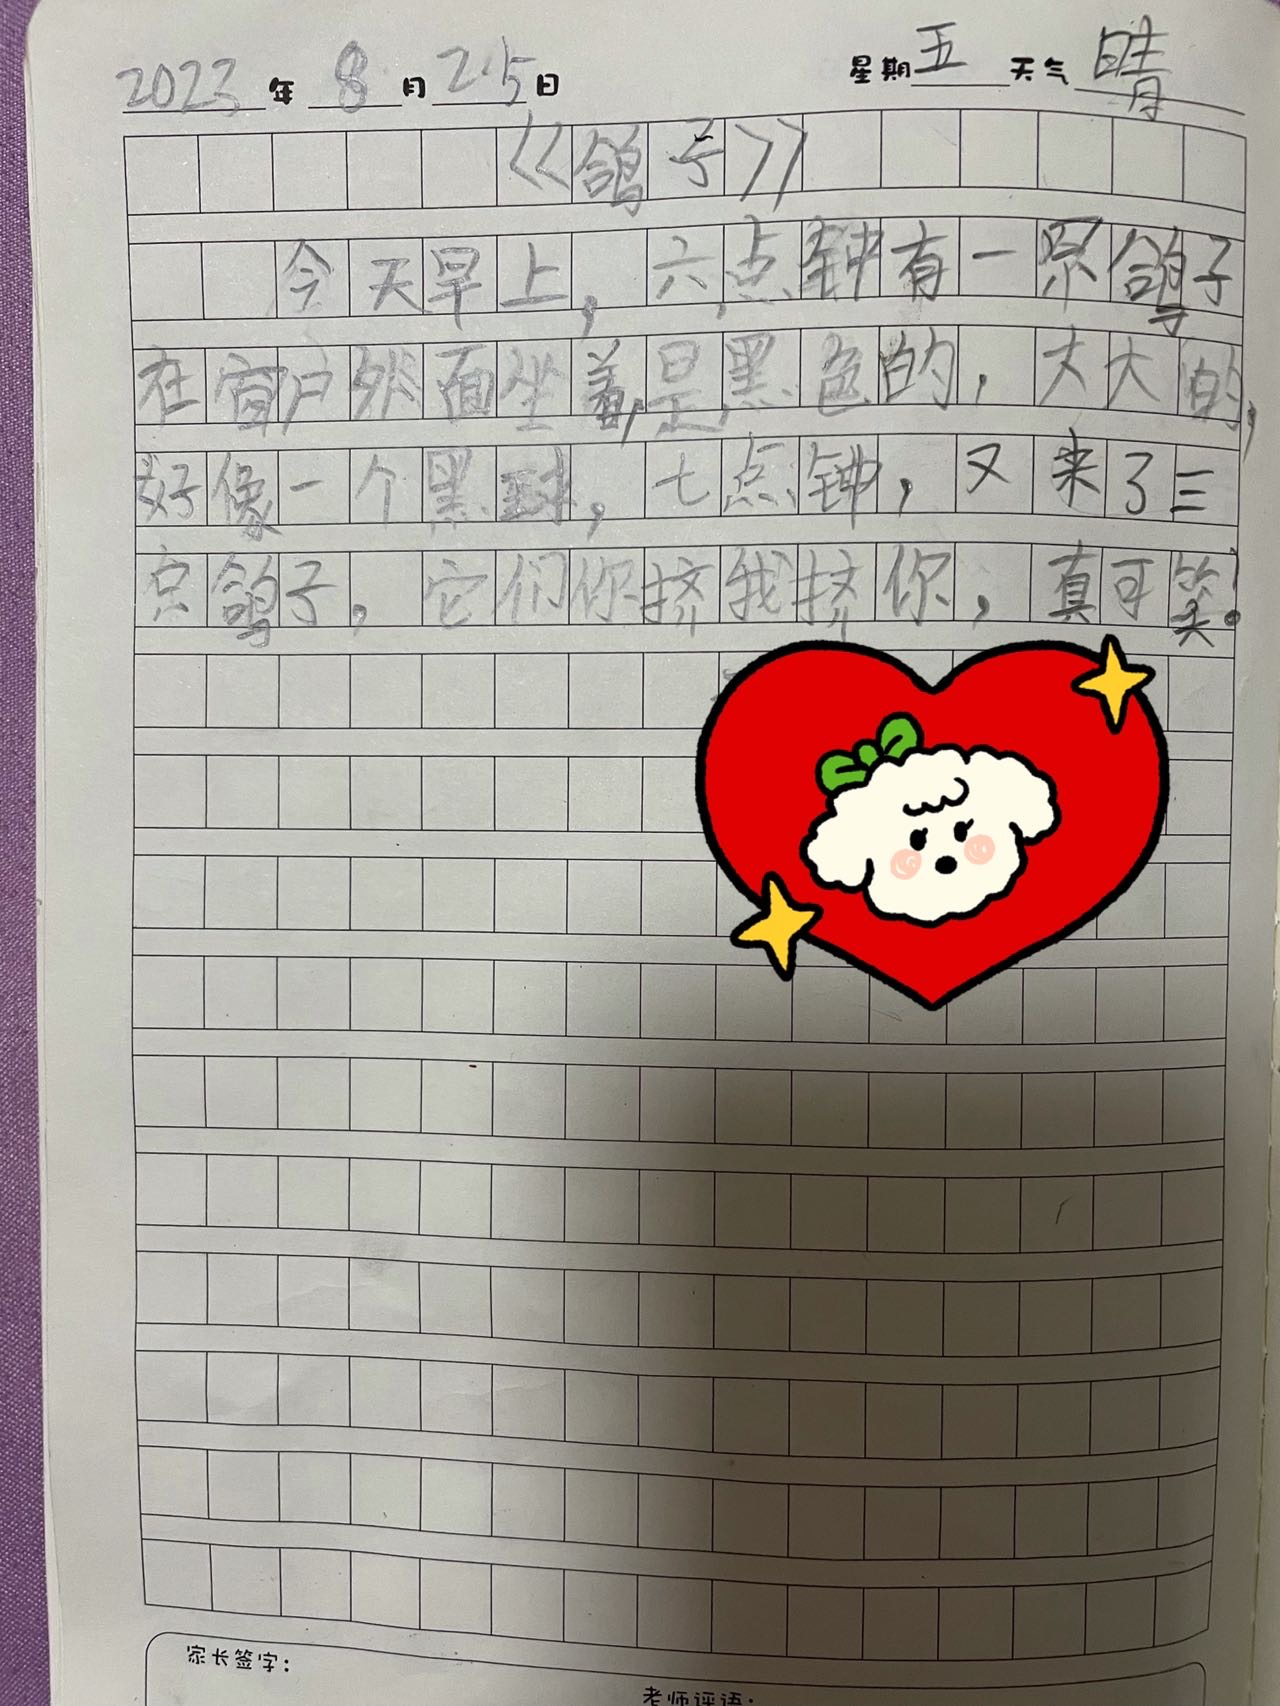 2023年8月25日 星期五天气晴
《鸽子》
今天早上，六点钟有一只鸽子
在窗户外面坐着，是黑色的，大大的，
好像一个黑球，七点钟，又来了三
只鸽子，它们你挤我挤你，真可笑！
家长签字：
老师评语：